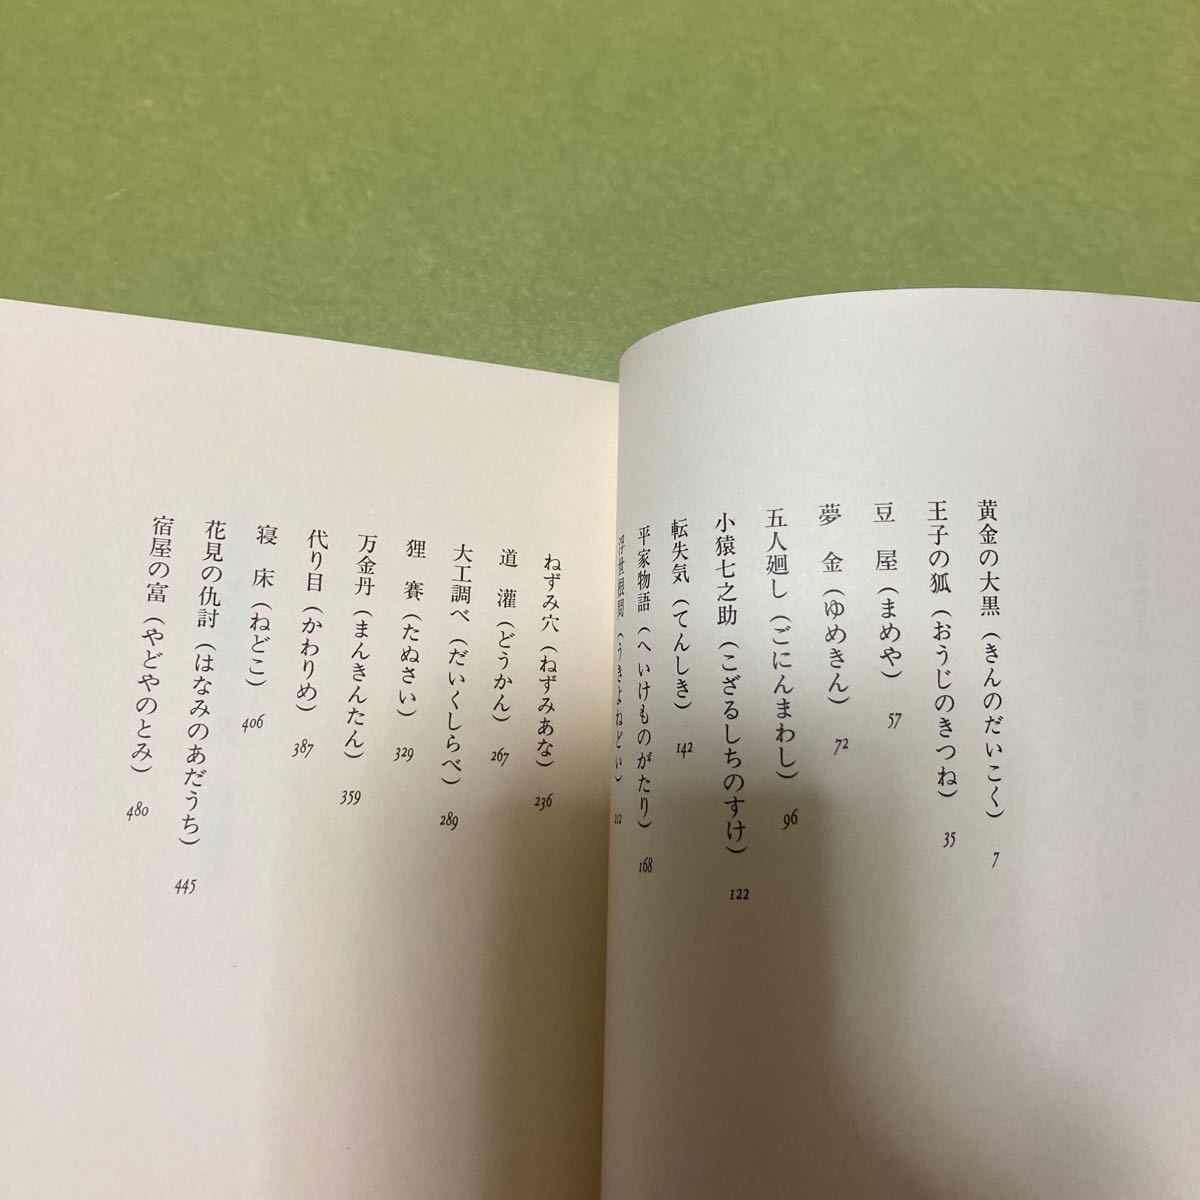 黄金の大黒（きんのだいこく） 7
王子の狐（おうじのきつね） 35
豆屋（まめや） 57
夢金（ゆめきん） 72
五人廻し（ごにんまわし） 96
小猿七之助（こざるしちのすけ） 122
転失気（てんしき） 142
平家物語（へいけものがたり） 168
浮世根問（うきよねどい） 212
ねずみ穴（ねずみあな） 236
道灌（どうかん） 267
大工調べ（だいくしらべ） 289
狸賽（たぬさい） 329
万金丹（まんきんたん） 359
代り目（かわりめ） 387
寝床（ねどこ） 406
花見の仇討（はなみのあだうち） 445
宿屋の富（やどやのとみ） 480